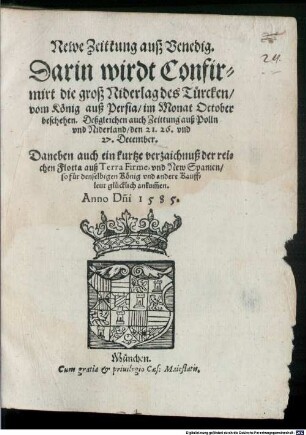 Newe Zeittung auß Venedig.
Darin wirdt Confir-
mirt die groß Niderlag des Türcken/
vom König auß Persia/ im Monat October
beschehen. Deßgleichen auch Zeittung auß Polln
vnd Niderland/ den 21. 26. vnd
27. December.
Daneben auch ein kurtze verzaichnuß der rei-
chen Flotta auß Terra Firme, vnd New Spanien/
so für denselbigen König vnd andere Kauff-
leut glücklich ankommen.
Anno Dñi 1585.
München.
Cum gratia & priuilegio Cæs: Maiestatis.